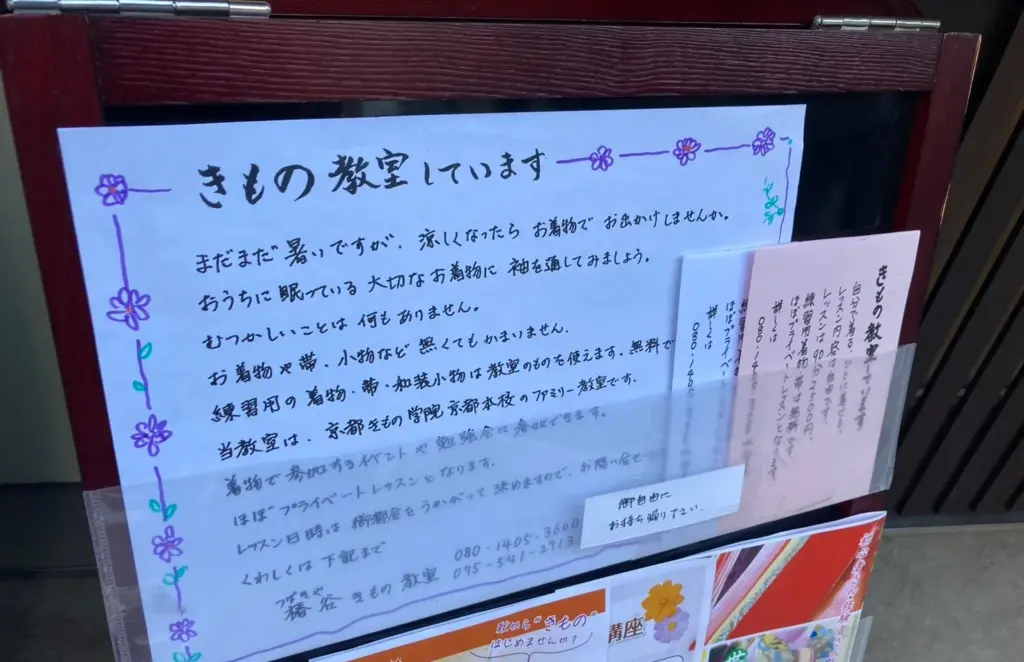 きもの教室しています
まだまだ暑いですが、涼しくなったら お着物で お出かけしませんか。
おうちに眠っている 大切な お着物に 袖を通してみましょう。
むつかしいことは 何もありません。
お着物や帯・小物など 無くてもかまいません。
練習用の 着物・帯・和装小物は 教室のものを使えます。無料で
当教室は、京都きもの学院 京都本校の ファミリー教室です。
着物で 参加する イベントや 勉強会に 参加できます。
ほぼ プライベートレッスンと なります。
レッスン日時は 御都合を うかがって 決めますので、お問い合せ
くわしくは 下記まで
080-1405-3600
075-541-2713
きもの 教室
御自由に
お持ち帰り下さい。
詳しくは
きもの教室しています
レッスン内容は自由です。
レッスンは90分2500円、
練習用着物、帯は無料です
ほぼプライベートレッスンとなります
詳しくは
秋から"きもの"
はじめませんか?
講座